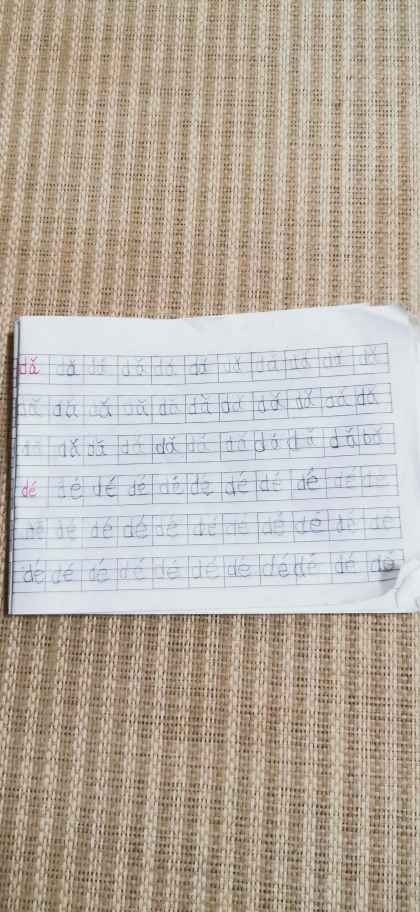 dǎ dǎ dǎ dǎ dǎ dǎ dǎ dǎ dǎ dǎ dǎ
dǎ dǎ dǎ dǎ dǎ dǎ dǎ dǎ dǎ dǎ dǎ
dǎ dǎ dǎ dǎ dǎ dǎ dǎ dǎ dǎ dǎ bǎ
dé dé dé dé dé dé dé dé dé dé dé
dé dé dé dé dé dé dé dé dé dé dé
dé dé dé dé dé dé dé dé dé dé dé